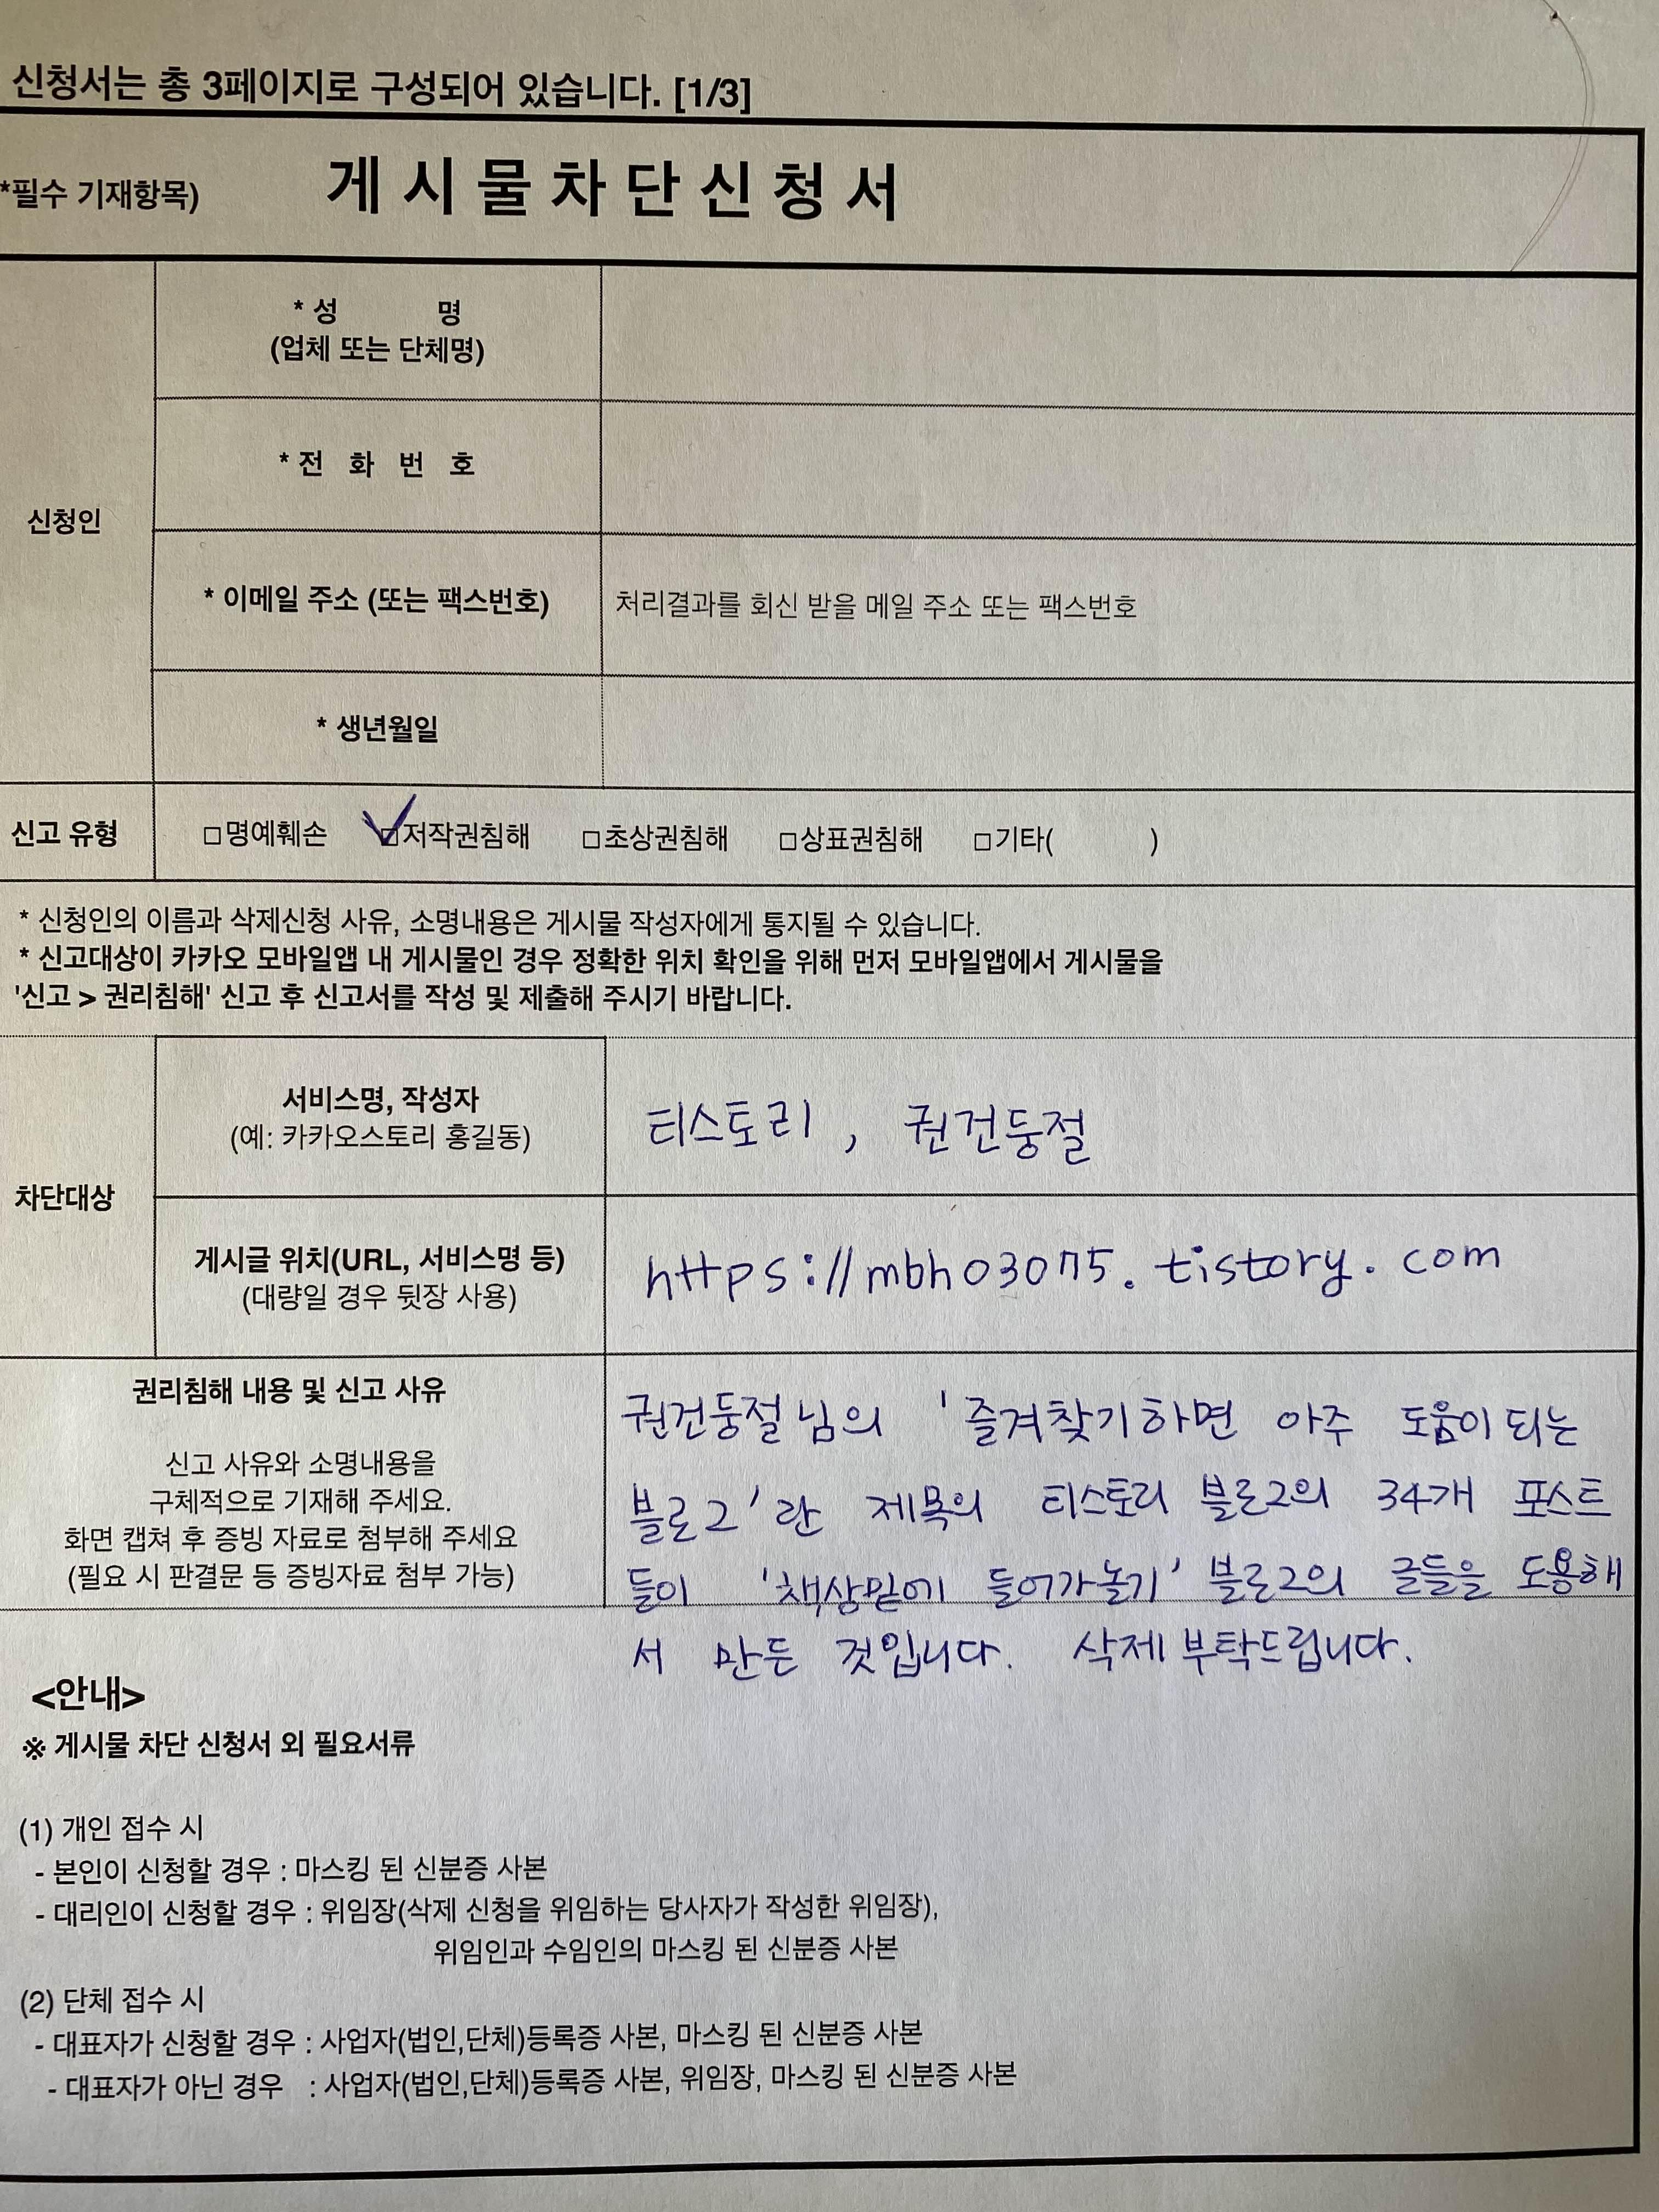 신청서는 총 3페이지로 구성되어 있습니다. [1/3]
*필수 기재항목)
게시물차단신청서
신청인
* 성 명
(업체 또는 단체명)
* 전 화 번 호
* 이메일 주소 (또는 팩스번호)
처리결과를 회신 받을 메일 주소 또는 팩스번호
* 생년월일
신고 유형
□명예훼손 □저작권침해 □초상권침해 □상표권침해 □기타( )
* 신청인의 이름과 삭제신청 사유, 소명내용은 게시물 작성자에게 통지될 수 있습니다.
* 신고대상이 카카오 모바일앱 내 게시물인 경우 정확한 위치 확인을 위해 먼저 모바일앱에서 게시물을
'신고 > 권리침해' 신고 후 신고서를 작성 및 제출해 주시기 바랍니다.
차단대상
서비스명, 작성자
(예: 카카오스토리 홍길동)
티스토리, 권건둥절
게시글 위치(URL, 서비스명 등)
(대량일 경우 뒷장 사용)
https://mbh03075.tistory.com
권리침해 내용 및 신고 사유
신고 사유와 소명내용을
구체적으로 기재해 주세요.
화면 캡쳐 후 증빙 자료로 첨부해 주세요
(필요 시 판결문 등 증빙자료 첨부 가능)
권건둥절님의 '즐겨찾기하면 아주 도움이 되는
블로그'란 제목의 티스토리 블로그의 34개 포스트
들이 '책상밑에 들어가놀기' 블로그의 글들을 도용해
서 만든 것입니다. 삭제 부탁드립니다.
<안내>
※ 게시물 차단 신청서 외 필요서류
(1) 개인 접수 시
- 본인이 신청할 경우 : 마스킹 된 신분증 사본
- 대리인이 신청할 경우 : 위임장(삭제 신청을 위임하는 당사자가 작성한 위임장),
위임인과 수임인의 마스킹 된 신분증 사본
(2) 단체 접수 시
- 대표자가 신청할 경우 : 사업자(법인,단체)등록증 사본, 마스킹 된 신분증 사본
- 대표자가 아닌 경우 : 사업자(법인,단체)등록증 사본, 위임장, 마스킹 된 신분증 사본